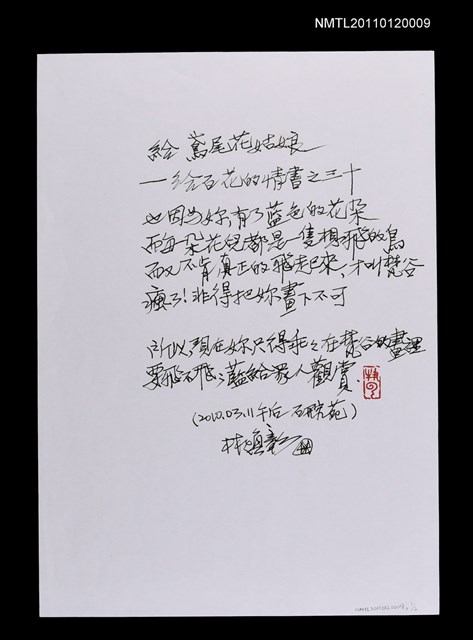 NMTL20110120009
給 鳶尾花姑娘
—給百花的情書之三十
也因為妳,有了藍色的花朵
而每一朵花兒都是一隻想飛的鳥
而又不肯真正的飛走起來,才叫梵谷
瘋了!非得把妳畫下不可
所以,現在妳只得乖乖在梵谷的畫裡
要飛不飛;藍給眾人觀賞.
(2010.03.11午后 石頭苑)
林煥彰